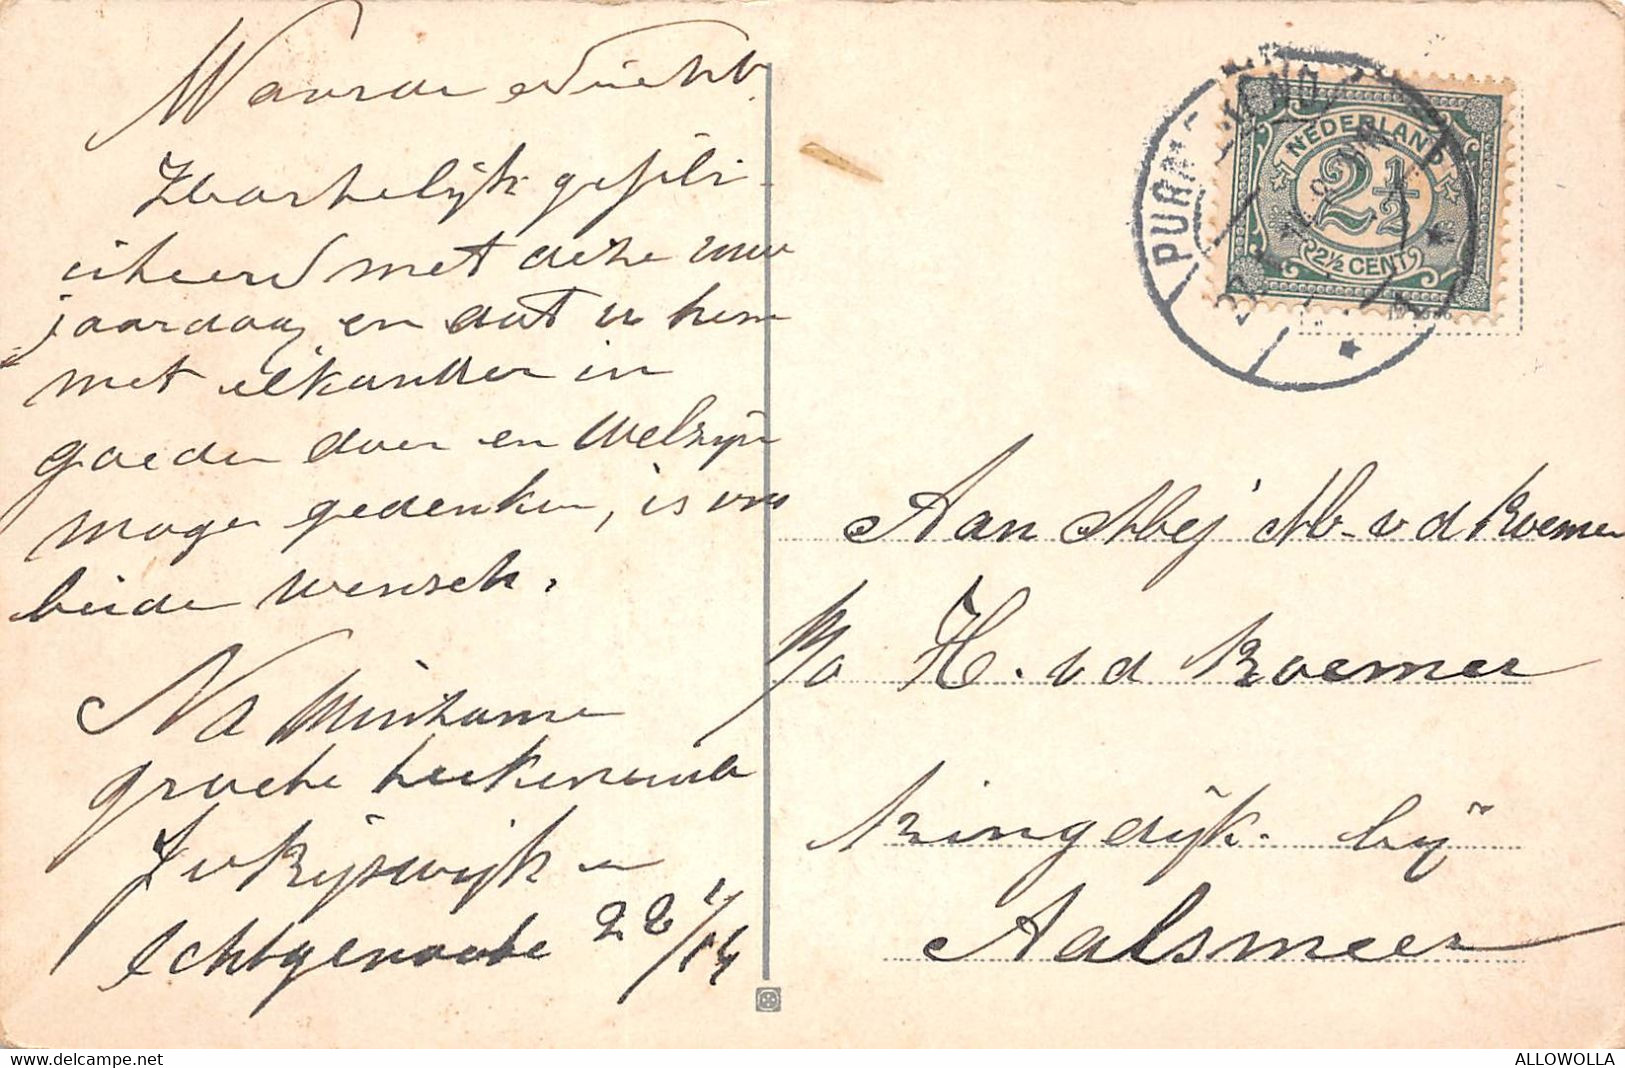 Waarde Nicht
Hartelijk gefeli-
citeerd met deze uw
jaardag en dat u hem
met elkander in
goeden doen en Welzijn
moge gedenken, is ons
beide wensch.
Na Minzame
groete teekenende
J v Rijswijk en
Echtgenoote 22/1/14
NEDERLAND
2½
2½ CENT
PURMEREND
Aan Mej M. v d Roemer
p/a H. v d Roemer
Ringdijk bij
Aalsmeer
ALLOWOLLA